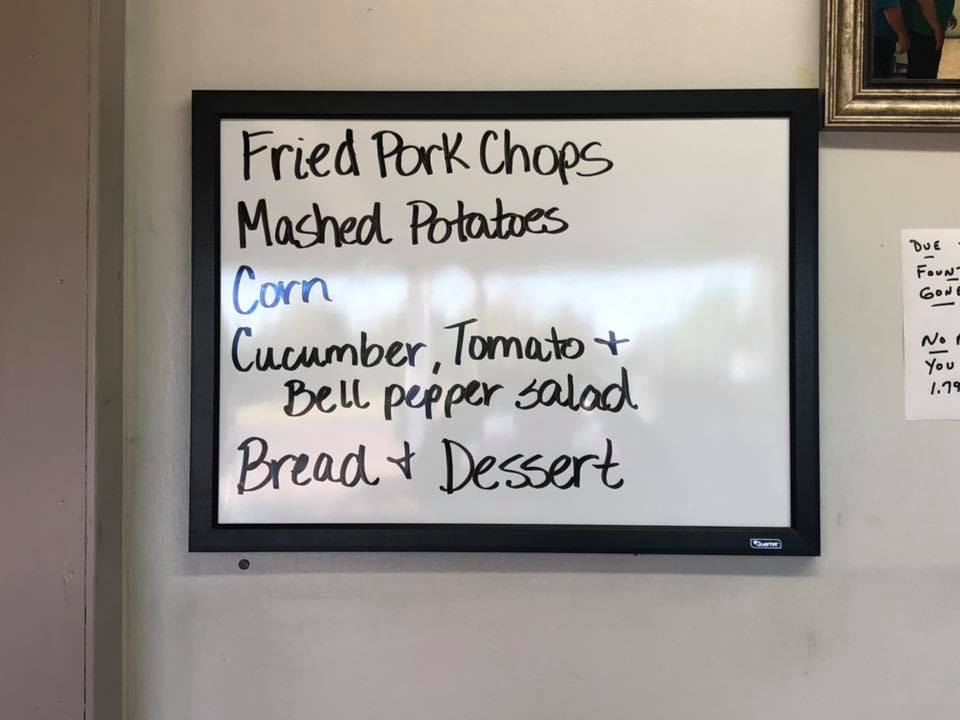 Fried Pork Chops
Mashed Potatoes
Corn
Cucumber, Tomato +
Bell pepper salad
Bread + Dessert
Quartet
DUE
FOUN
GONE
NO
YOU
1.79